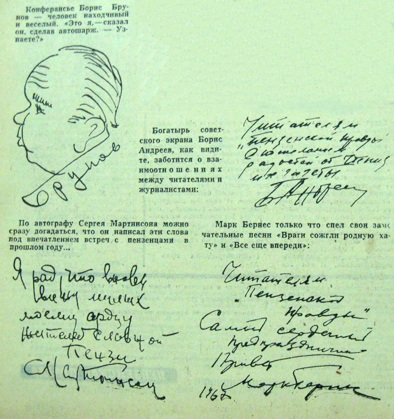 Конферансье Борис Бру-
нов — человек находчивый
и веселый. «Это я, — сказал
он, сделав автошарж. — Уз-
наете?»
Брунов
Богатырь совет-
ского экрана Борис
Андреев, как види-
те, заботится о вза-
имоотношениях
между читателями и
журналистами:
Читателям
"Пензенской правды"
радостей от
газеты
БАндреев
По автографу Сергея Мартинсона можно
сразу догадаться, что он написал эти слова
под впечатлением встреч с пензенцами в
прошлом году...
Я рад, что вновь
вижу милых
моему сердцу
жителей славной
Пензы
С Мартинсон
Марк Бернес только что спел свои заме-
чательные песни «Враги сожгли родную ха-
ту» и «Все еще впереди»:
Читателям
"Пензенской
Правды"
Самый сердечный
предпраздничный
Привет
Марк Бернес
1967